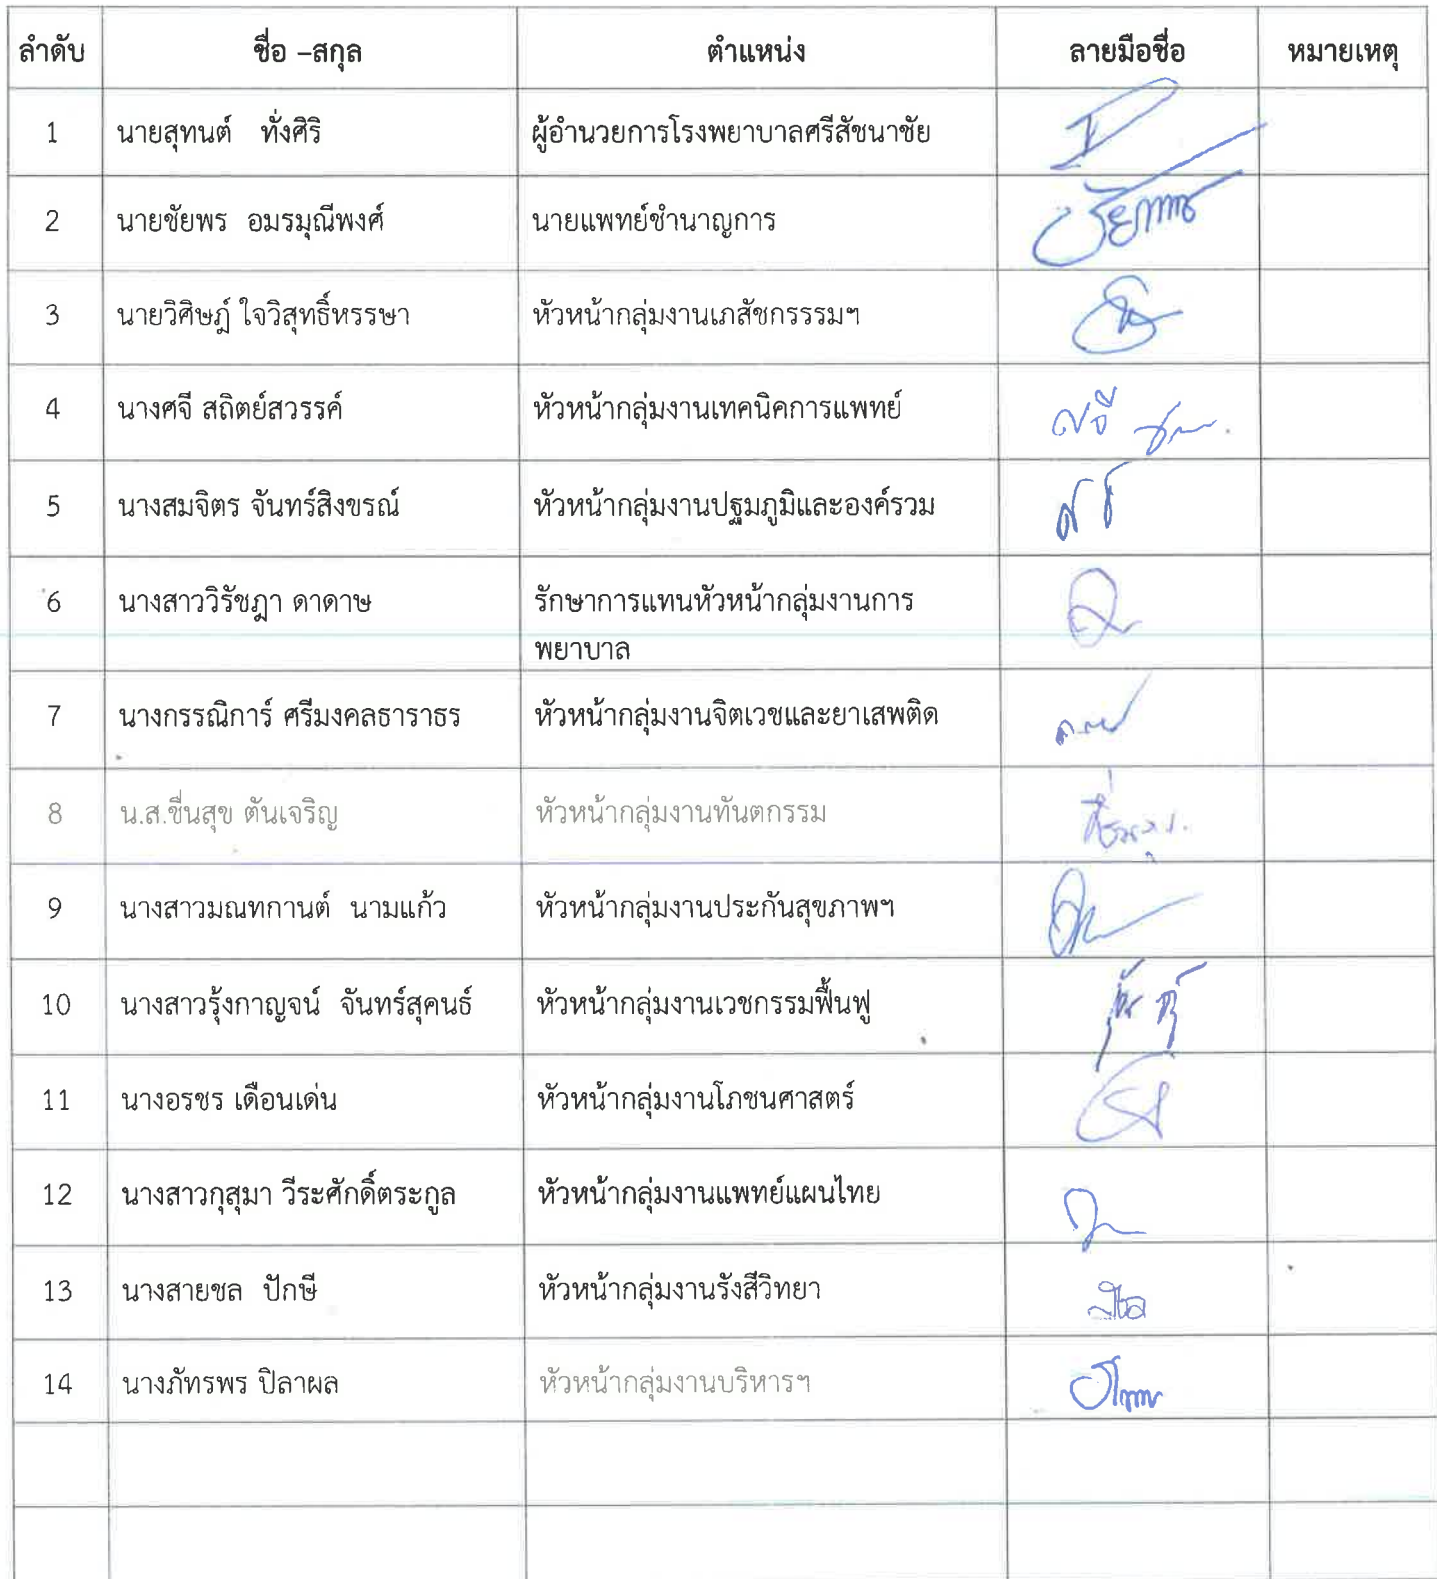 ลำดับ ชื่อ –สกุล ตำแหน่ง ลายมือชื่อ หมายเหตุ
1 นายสุทนต์ ทั่งศิริ ผู้อำนวยการโรงพยาบาลศรีสัชนาชัย
2 นายชัยพร อมรมุณีพงศ์ นายแพทย์ชำนาญการ
3 นายวิศิษฎ์ ใจวิสุทธิ์หรรษา หัวหน้ากลุ่มงานเภสัชกรรรมฯ
4 นางศจี สถิตย์สวรรค์ หัวหน้ากลุ่มงานเทคนิคการแพทย์
ศจี
5 นางสมจิตร จันทร์สิงขรณ์ หัวหน้ากลุ่มงานปฐมภูมิและองค์รวม
6 นางสาววิรัชฎา ดาดาษ รักษาการแทนหัวหน้ากลุ่มงานการ
พยาบาล
7 นางกรรณิการ์ ศรีมงคลธาราธร หัวหน้ากลุ่มงานจิตเวชและยาเสพติด
8 น.ส.ชื่นสุข ตันเจริญ หัวหน้ากลุ่มงานทันตกรรม
9 นางสาวมณฑกานต์ นามแก้ว หัวหน้ากลุ่มงานประกันสุขภาพฯ
10 นางสาวรุ้งกาญจน์ จันทร์สุคนธ์ หัวหน้ากลุ่มงานเวชกรรมฟื้นฟู
11 นางอรชร เดือนเด่น หัวหน้ากลุ่มงานโภชนศาสตร์
12 นางสาวกุสุมา วีระศักดิ์ตระกูล หัวหน้ากลุ่มงานแพทย์แผนไทย
13 นางสายชล ปักษี หัวหน้ากลุ่มงานรังสีวิทยา
14 นางภัทรพร ปิลาผล หัวหน้ากลุ่มงานบริหารฯ